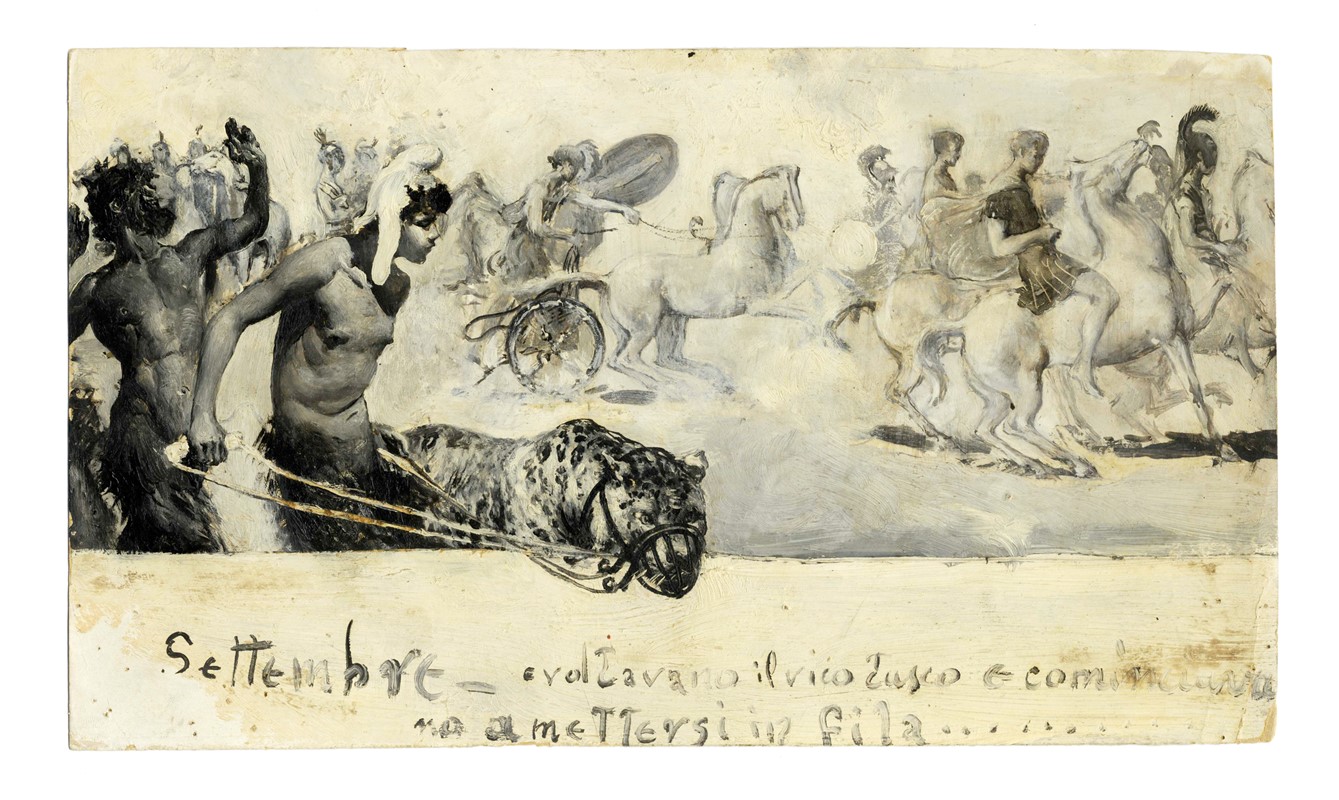 Settembre _ e voltavano il vico tusco e cominciava
no a mettersi in fila...........